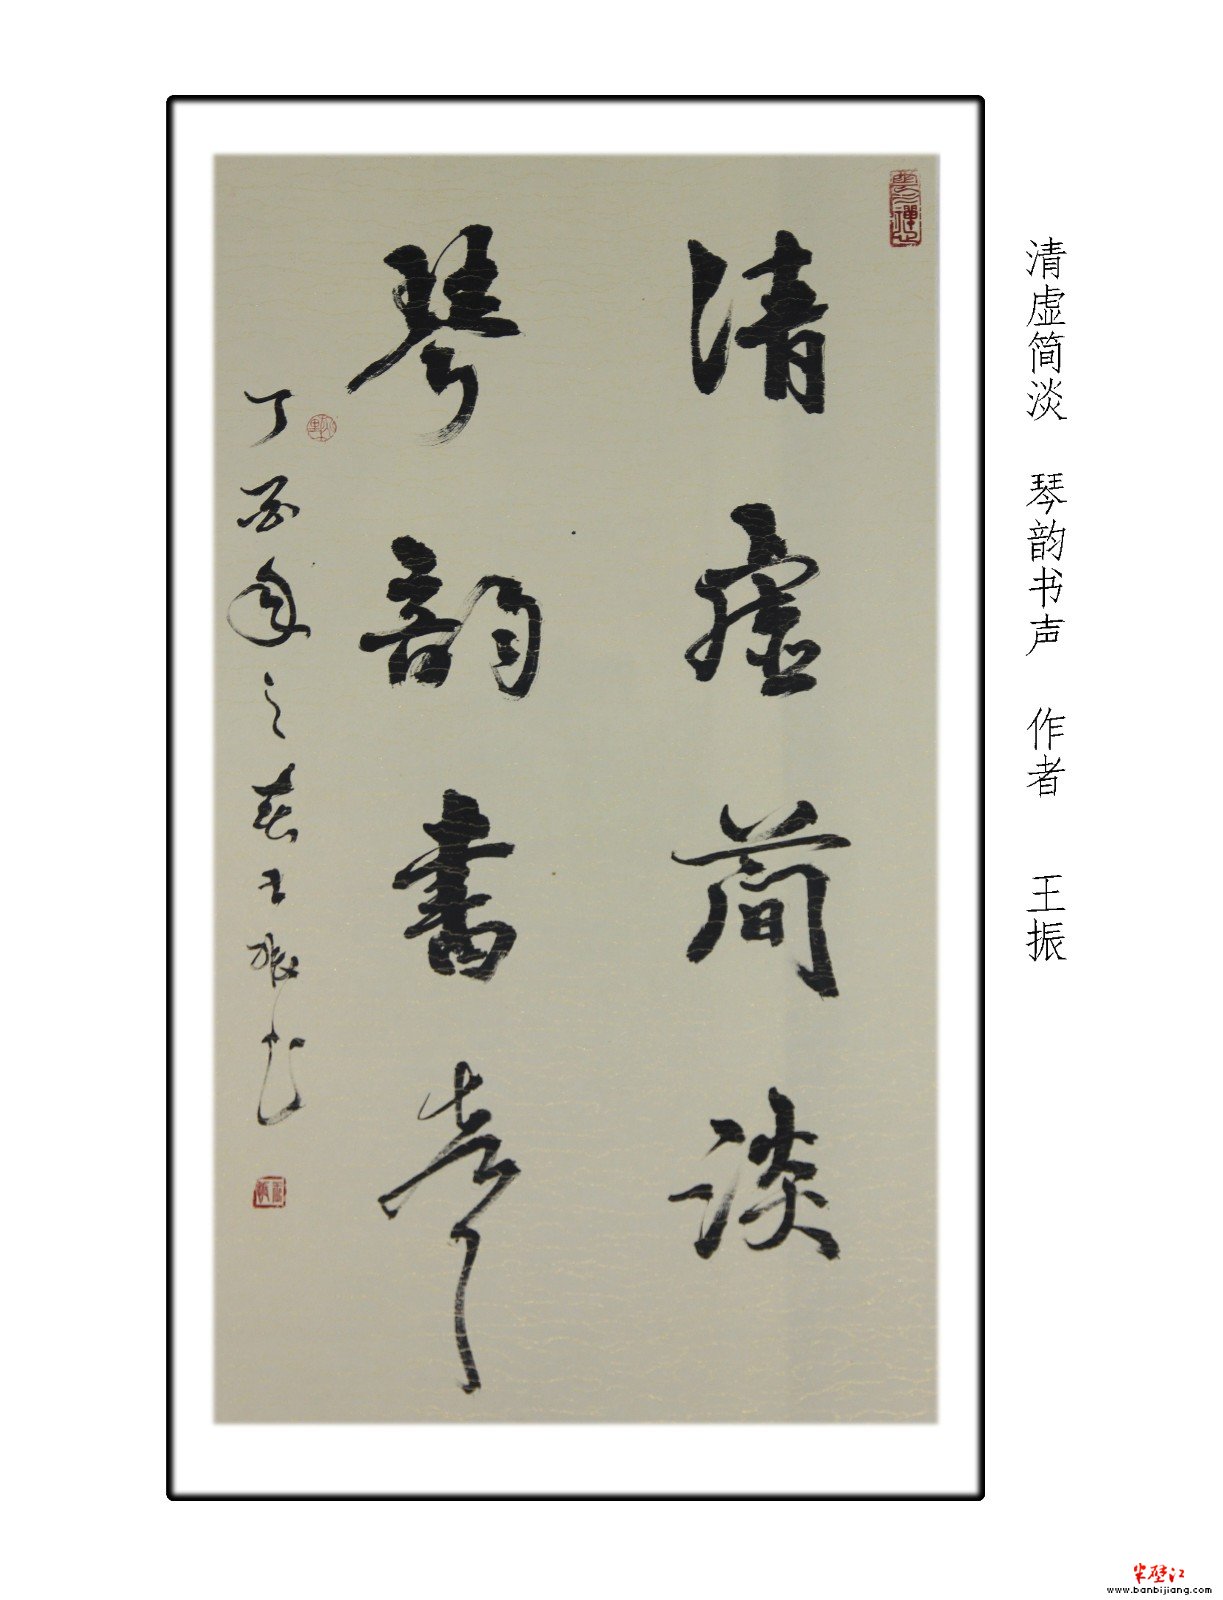 清虚简淡 琴韵书声 作者 王振
清虚簡淡
琴韵書声
丁酉年之春王振书
半壁江
www.banbijiang.com